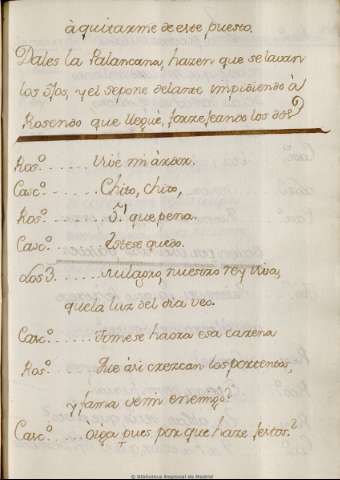 à quitarme de este puesto.
Dales la Palancana, hazen que se lavan
los ojos, y el se pone delante impidiendo à
Rosendo que llegue, forzejeando los dos
Ros.º ...... 
Casc.º ...... Chito, chito,
Ros.º ...... que pena.
Casc.º ...... Estese quedo.
Los 3. ...... Milagro, nuestro rey viva,
que la luz del dia veo.
Casc.º ...... Tomese haora esa
Ros.º ...... Que asi crezcan los portentos,
y fama de mi enemigo?
Casc.º ...... oiga, pues por que haze gestos?
© Biblioteca Regional de Madrid